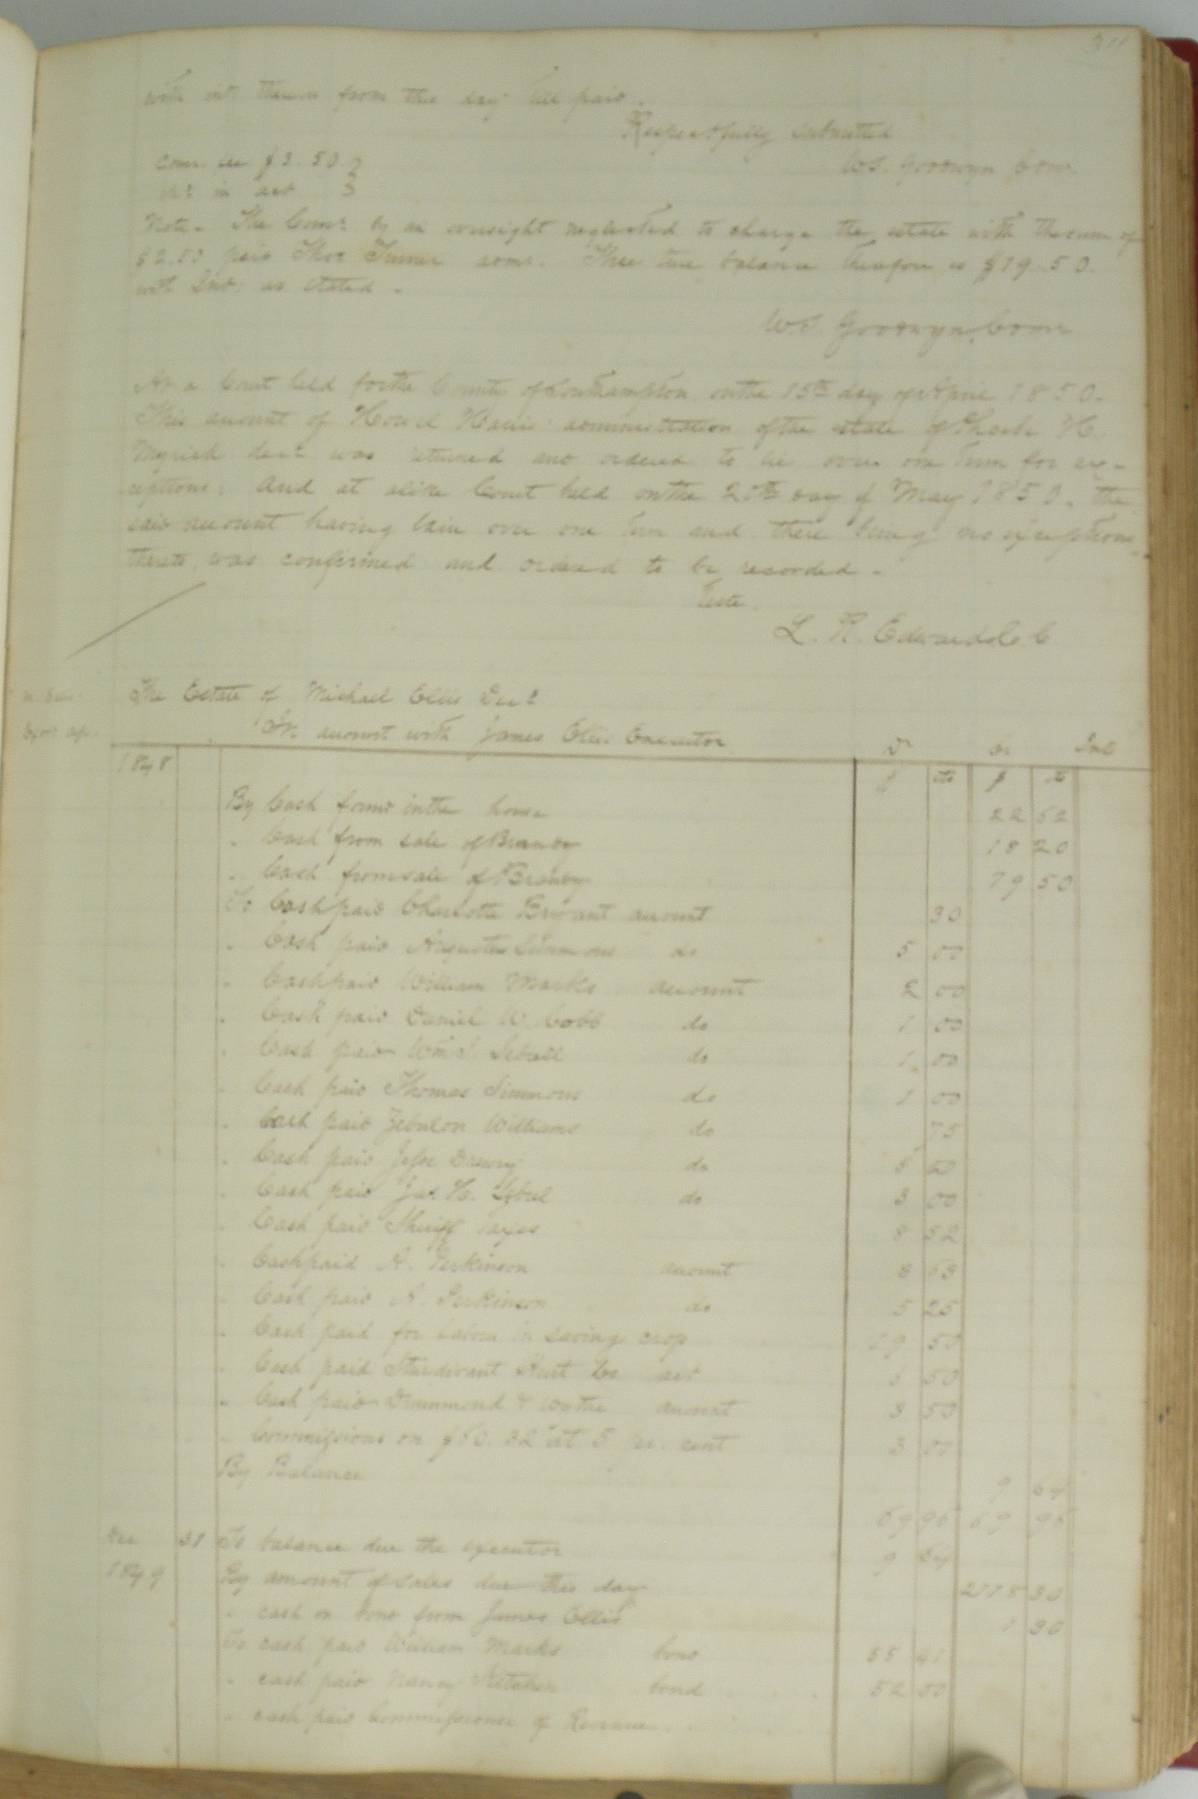 with int thereon from this day till paid.
Respectfully submitted
W.S. Goodwyn Comr.
Comr. fee $3.50
in act
Note - The Comr. by an oversight neglected to charge the estate with the sum of
$2.50 paid Thos Turner some. Thee true balance therefore is $19.50.
with Int: as stated -
W.S. Goodwyn, Comr
At a Court held for the County of Southampton on the 15th day of April 1850.
This account of Howel Harris administration of the estate of H.
Myrick decd was returned and ordered to lie over one Term for ex-
ceptions. And at alike Court held on the 20th day of May 1850. the
said account having lain over one Term and there being no exceptions
thereto, was confirmed and ordered to be recorded -
Teste.
L. R. Edwards C. C
The Estate of Michael Ellis Decd
In account with James Ellis Executor
Dr Cr Int
1848 $ cts $ cts
By Cash found in the house 22 62
" Cash from sale of Brandy 18 20
" Cash from sale of Brandy 19 50
To Cash paid Charlotte Bryant account 30
" Cash paid Simmons do 5 00
" Cash paid William Marks account 2 00
" Cash paid Daniel W. Cobb do 1 00
" Cash paid Wm J. Sebrell do 1 00
" Cash paid Thomas Simmons do 1 00
" Cash paid Zebulon Williams do 75
" Cash paid Jesse Drewry do 50
" Cash paid Jas. H. do 3 00
" Cash paid Sheriff taxes 8 52
" Cash paid A. Perkinson account 8 63
" Cash paid A. Perkinson do 5 25
" Cash paid for labour in saving crop 19 50
" Cash paid Sturdivant Hurt Co act 50
" Cash paid Drummond & Wythe account 3 50
" Commissions on $60.32 at 5 pr. cent 3 01
By Balance 9 64
69 96 69 96
Dec 31 To balance due the executor 9 64
1849 By amount of sales due this day 30
" cash on bond from James Ellis 1 30
To cash paid William Marks bond 55 41
" cash paid Nancy bond 52 00
" cash paid Commissioner of Revenue